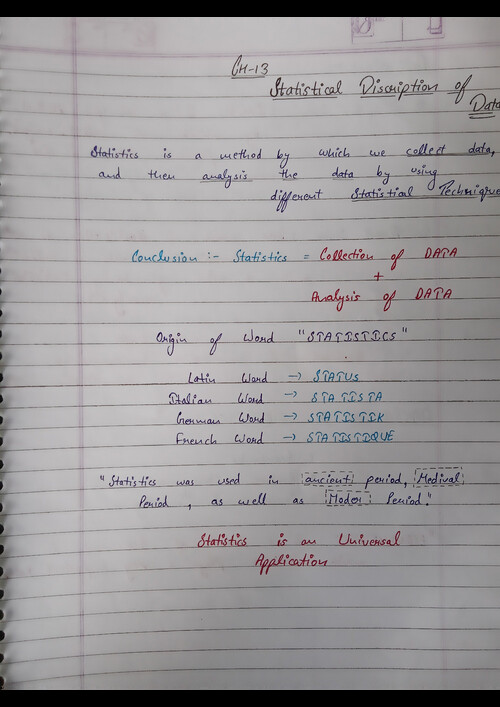 CH-13
Statistical Discription of
Data
Statistics is a method by which we collect data,
and then analysis the data by using
different Statistial Technique
Conclusion :- Statistics = Collection of DATA
+
Analysis of DATA
Origin of Word "STATISTICS"
Latin Word → STATUS
Italian Word → STATISTA
German Word → STATISTIK
French Word → STATISTIQUE
"Statistics was used in ancient period, Medival
Period, as well as Moder Period."
Statistics is an Universal
Application